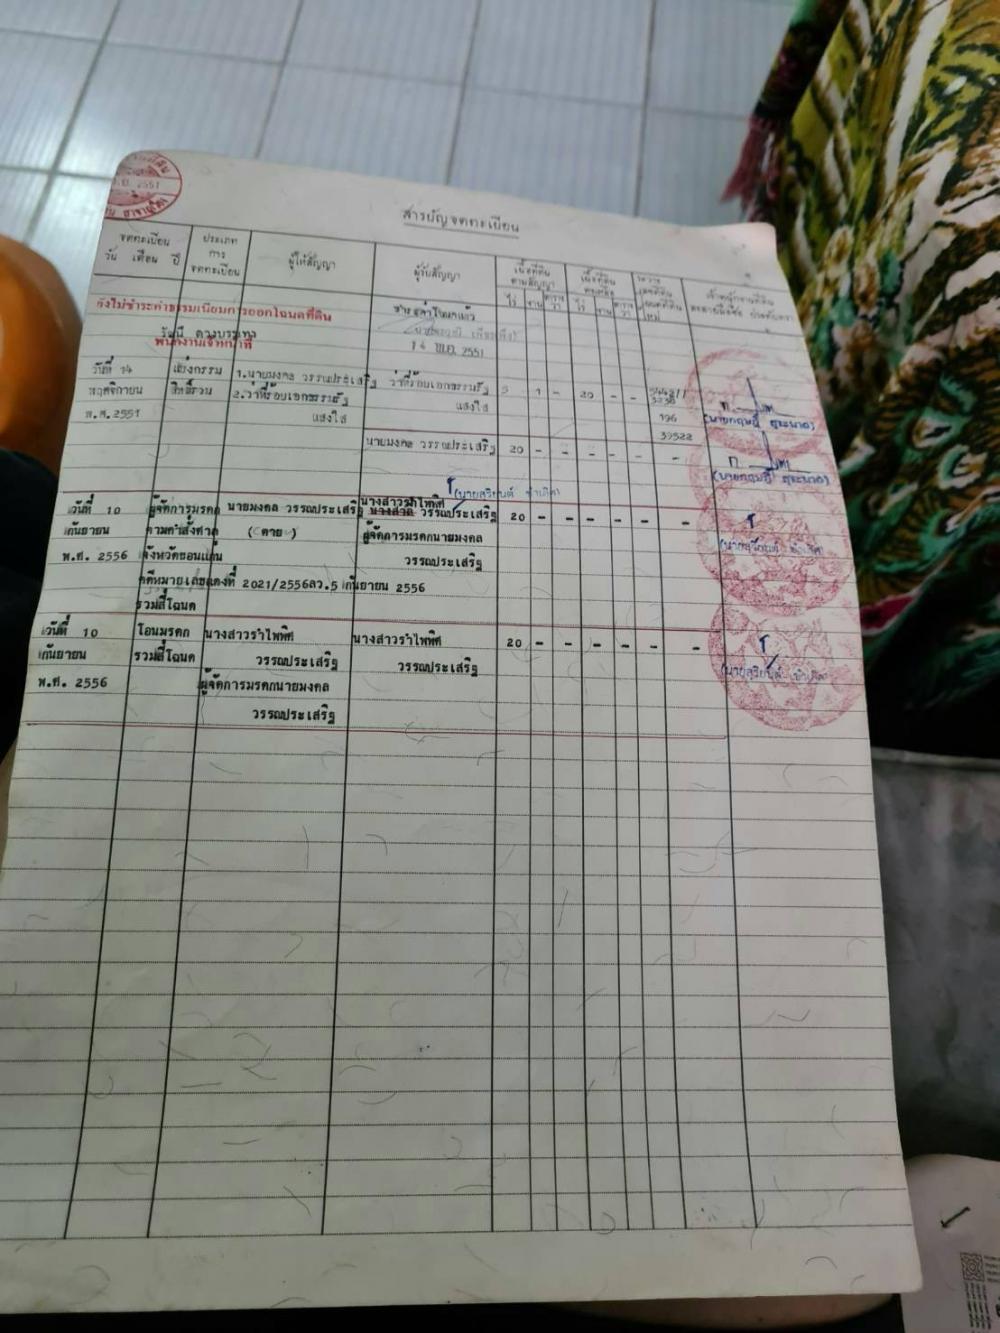 2551
สารบัญจดทะเบียน
จดทะเบียน วัน เดือน ปี
ประเภท การ จดทะเบียน
ผู้ให้สัญญา
ผู้รับสัญญา
เนื้อที่ดิน ตามสัญญา
ไร่ งาน ตาราง วา
เนื้อที่ดิน คงเหลือ
ไร่ งาน ตาราง วา
ระวาง เลขที่ดิน โฉนดที่ดิน ใหม่
เจ้าพนักงานที่ดิน
ยังไม่ชำระค่าธรรมเนียมการออกโฉนดที่ดิน
พนักงานเจ้าหน้าที่
14 พ.ย. 2551
วันที่ 14 แบ่งกรรม 1.นายมงคล วรรณประเสริฐ ว่าที่ร้อยเอกธรรมรัฐ 5 1 - 20 - -
พฤศจิกายน สิทธิ์รวม 2.ว่าที่ร้อยเอกธรรมรัฐ แสงใส
พ.ศ. 2551 แสงใส 196
39522
นายมงคล วรรณประเสริฐ 20 - - - - - -
(นายสุริยนต์
นางสาวรำไพพิศ
วันที่ 10 ผู้จัดการมรดก นายมงคล วรรณประเสริฐ นางสาว วรรณประเสริฐ 20 - - - - - -
กันยายน ตามคำสั่งศาล (ตาย) ผู้จัดการมรดกนายมงคล
พ.ศ. 2556 จังหวัดขอนแก่น วรรณประเสริฐ
คดีหมายเลขแดงที่ 2021/2556ลว.5 กันยายน 2556
รวมสี่โฉนด
วันที่ 10 โอนมรดก นางสาวรำไพพิศ นางสาวรำไพพิศ 20 - - - - - -
กันยายน รวมสี่โฉนด วรรณประเสริฐ วรรณประเสริฐ
พ.ศ. 2556 ผู้จัดการมรดกนายมงคล
วรรณประเสริฐ